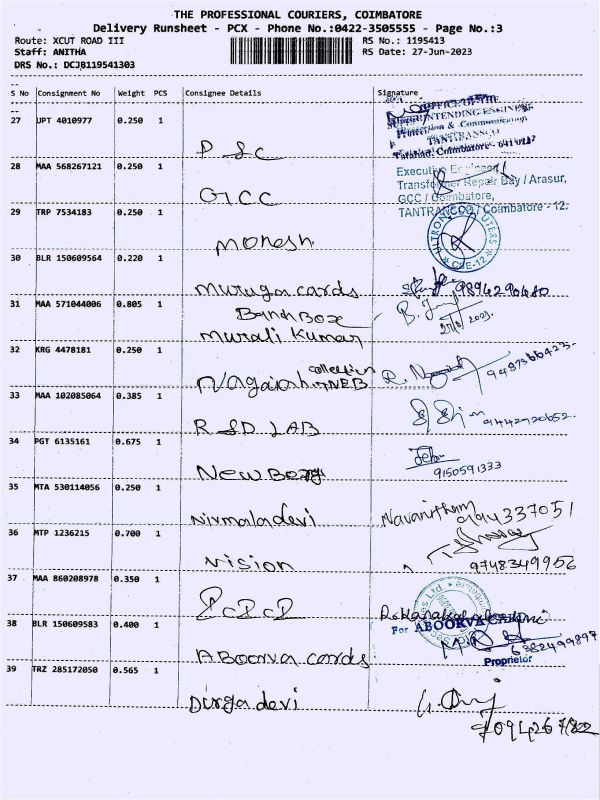 THE PROFESSIONAL COURIERS, COIMBATORE
Delivery Runsheet - PCX - Phone No.:0422-3505555 - Page No.:3
Route: XCUT ROAD III RS No.: 1195413
Staff: ANITHA RS Date: 27-Jun-2023
DRS No.: DCJB119541303
S No Consignment No Weight PCS Consignee Details Signature
27 UPT 4010977 0.250 1
OFFICE OF THE
SUPERINTENDING ENGINEER
Protection & Communication
TANTRANSCO
Tatabad, Coimbatore- 641012
P SC
28 MAA 568267121 0.250 1
Executive Engineer
Transformer Repair Bay / Arasur,
GCC / Coimbatore,
TANTRANSCO / Coimbatore - 12.
GCC
29 TRP 7534183 0.250 1
CBE-12
mohesh
30 BLR 150609564 0.220 1
muruga cards 9894290480
31 MAA 571044006 0.805 1
Bannbox
murali kumar
32 KRG 4478181 0.250 1
collection
Nagaiah TNEB
33 MAA 102085064 0.385 1
R SD LAB 9442720652
34 PGT 6135161 0.675 1
New 9150591333
35 MTA 530114056 0.250 1
Nirmaladevi Navanitham
9944337051
36 MTP 1236215 0.700 1
vision 9748349956
37 MAA 860208978 0.350 1
38 BLR 150609583 0.400 1
For ABOORVA CARD
6382499897
Proprietor
ABoorva cards
39 TRZ 285172050 0.565 1
Dirga devi